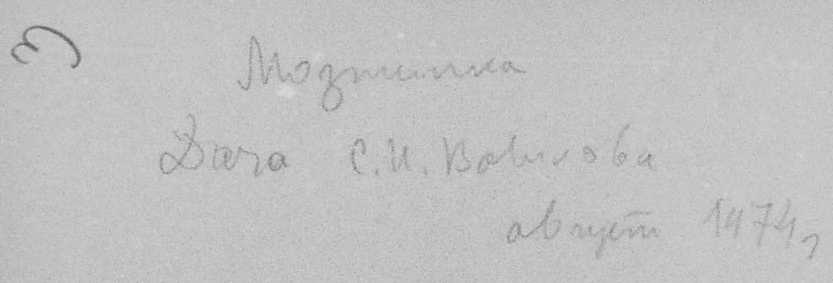 Мозжинка
Дача С.И. Вавилова
август 1974г